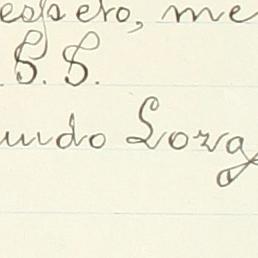 espero, me
S. S.
undo Loza